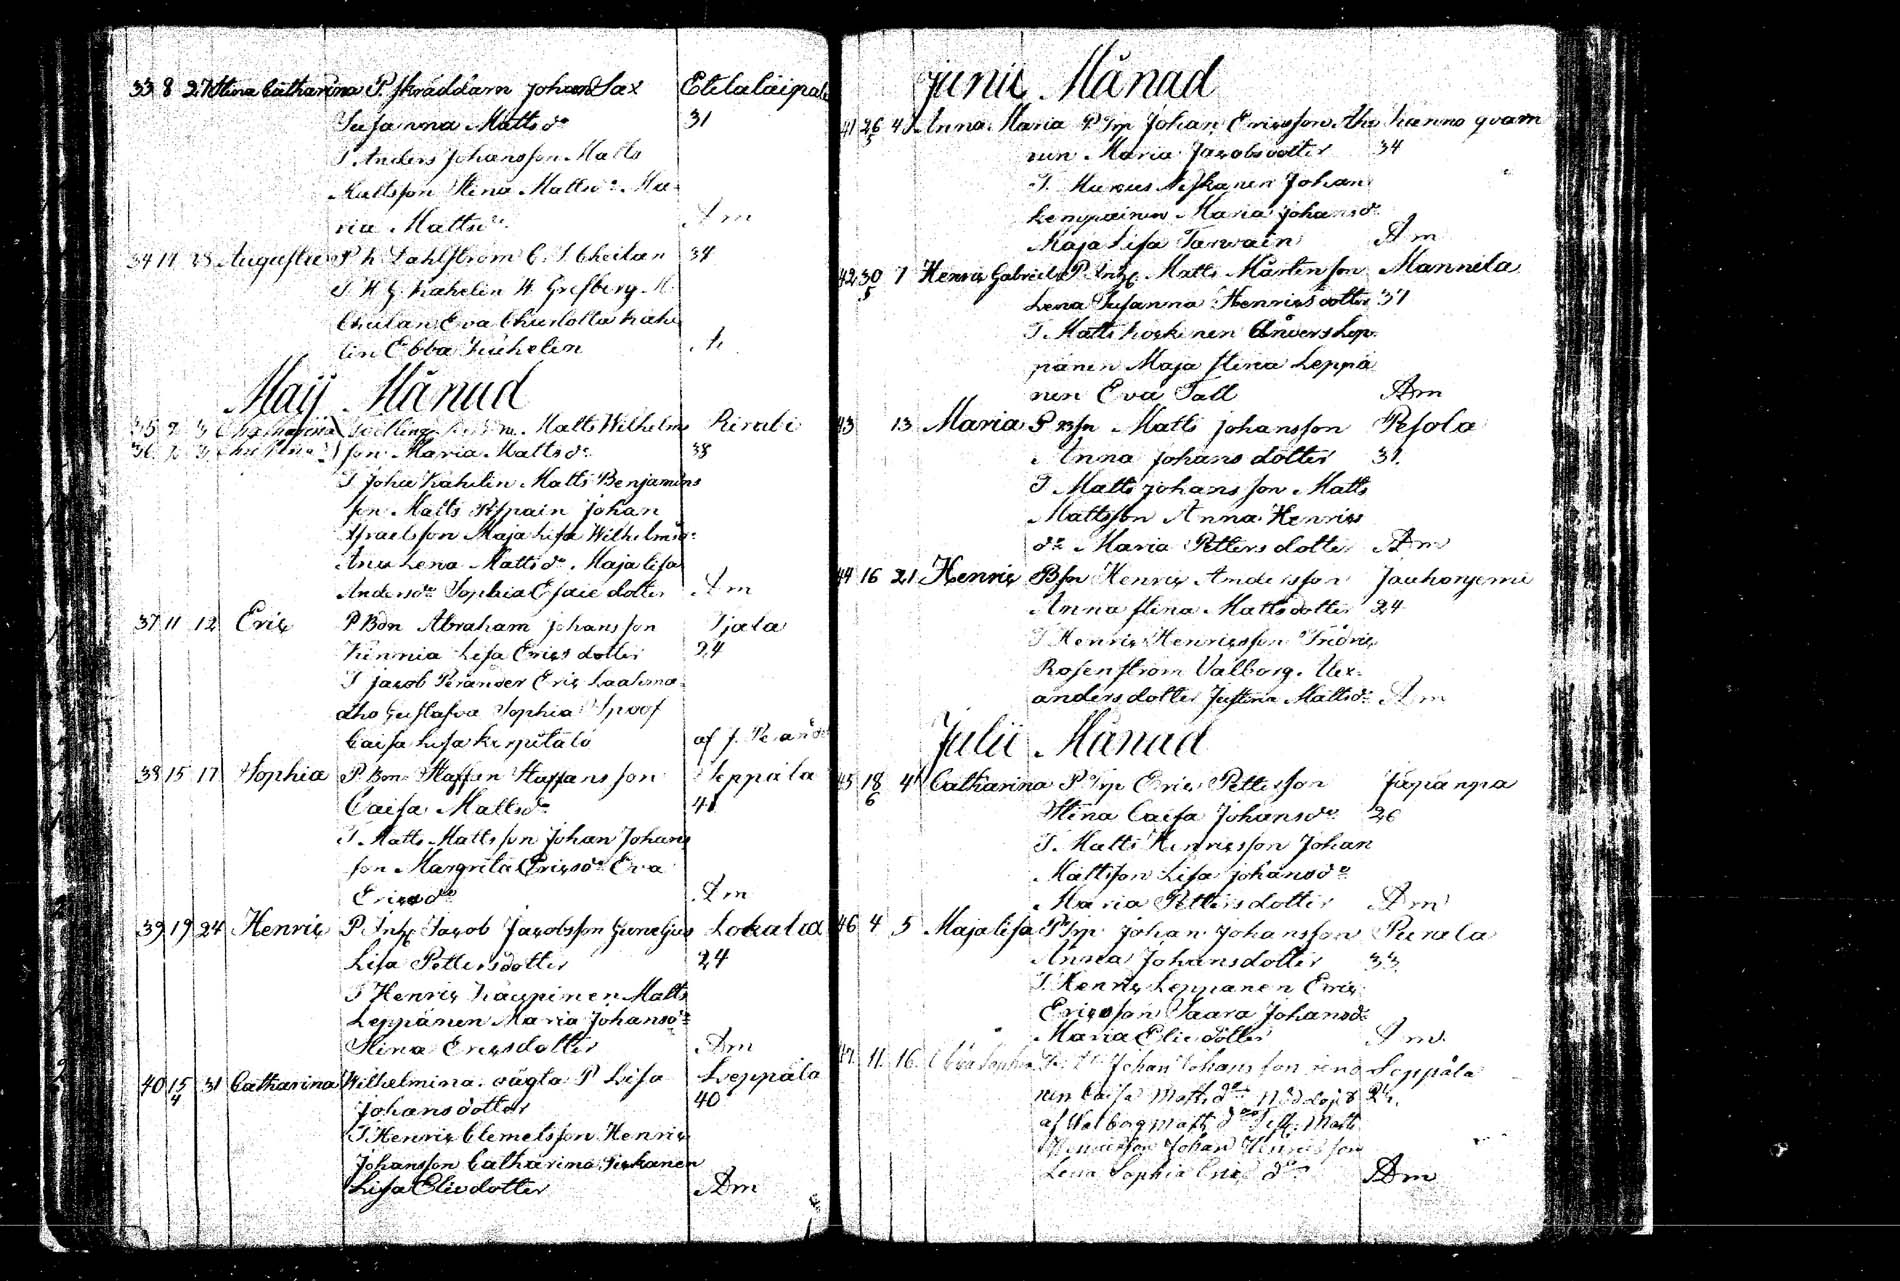 33 8 27 Stina Catharina P. Skräddarn Johan Sax Etelaläipälä
Susanna Matts dr 31
T Anders Johansson Matts
Mattsson Stina Mattsdr Ma-
ria Mattsdr Am
34 14 28 Augusta P h Dahlström C. S. Cheitan 34
T. H. G. Kahelin W. Grefberg M.
Cheitan Eva Charlotta Kahe
lin Ebba Kahelin A
Maij Månad
35 2 3 Catharina Matts Wilhelms
36 2 3 Christina son Maria Mattsdr 38
T Johan Kahelin Matts Benjamins
son Matts Johan
Israelsson Maja Lisa Wilhelmsdr
Ana Lena Mattsdr Maja Lisa
Andersdr Sophia Esaie dotter Am
37 11 12 Eric P Bdn Abraham Johansson Ijala
Lisa Erics dotter 24
T Jacob Perander Eric Laakma-
Gustafva Sophia Spoof
Caisa Lisa af J. Perander
38 15 17 Sophia P Bon Staffan Staffansson Seppälä
Caisa Mattsdr 41
T Matts Mattsson Johan Johans
son Margreta Ericsdr Eva
Ericsdr Am
39 19 24 Henric P Inh Jacob Jacobsson Lokalax
Lisa Pettersdotter 24
T Henric Kaupinen Matts
Leppänen Maria Johansdr
Stina Ericsdotter Am
40 15/4 31 Catharina Wilhelmina oägta P Lisa Leppälä
Johansdotter 40
T Henric Clemetsson Henric
Johansson Catharina
Lisa Elie dotter Am
Junii Månad
41 26/5 4 Anna Maria P Trp Johan Ericsson Aho
nen Maria Jacobsdotter 34
T. Marcus Niskanen Johan
Kemppainen Maria Johansdr
Maja Lisa Am
42 30/5 7 Henric Gabriel P Inh Matts Mårtensson Mannila
Lena Susanna Henricsdotter 37
T Matts Koskinen Anders Lep-
pänen Maja Stina Leppä
nen Eva Tall Am
43 13 Maria P Bsn Matts Johansson Pesola
Anna Johansdotter 31.
T Matts Johansson Matts
Mattsson Anna Henrics
dr Maria Pettersdotter Am
44 16 21 Henric Bsn Henric Andersson Jauhonjemi
Anna Stina Mattsdotter 24
T Henric Henricsson Fredric
Rosenström Valborg Alex-
andersdotter Justina Mattsdr Am
Julii Månad
45 18/6 4 Catharina P Trp Eric Pettersson
Stina Caisa Johansdr 26
T Matts Henricsson Johan
Mattsson Lisa Johansdr
Maria Pettersdotter Am
46 4 5 Maja Lisa P Trp Johan Johansson Purala
Anna Johansdotter 33
T Henric Leppänen Eric
Ericsson Saara Johansdr
Maria Elie dotter Am
47 11 16 Johan Johansson Seppälä
nen Caisa Mattsdr
af Walborg Mattsdr Test: Matts
Henricsson Johan Henricsson
Lena Sophia Erics dr Am